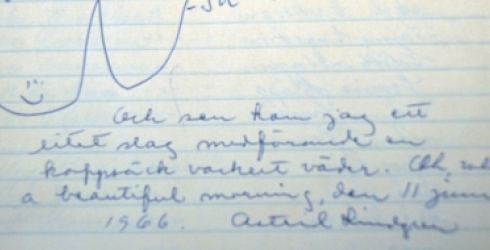 Och sen kom jag ett
litet slag medförande en
kappsäck vackert väder. Oh,
a beautiful morning, den 11 juni
1966. Astrid Lindgren